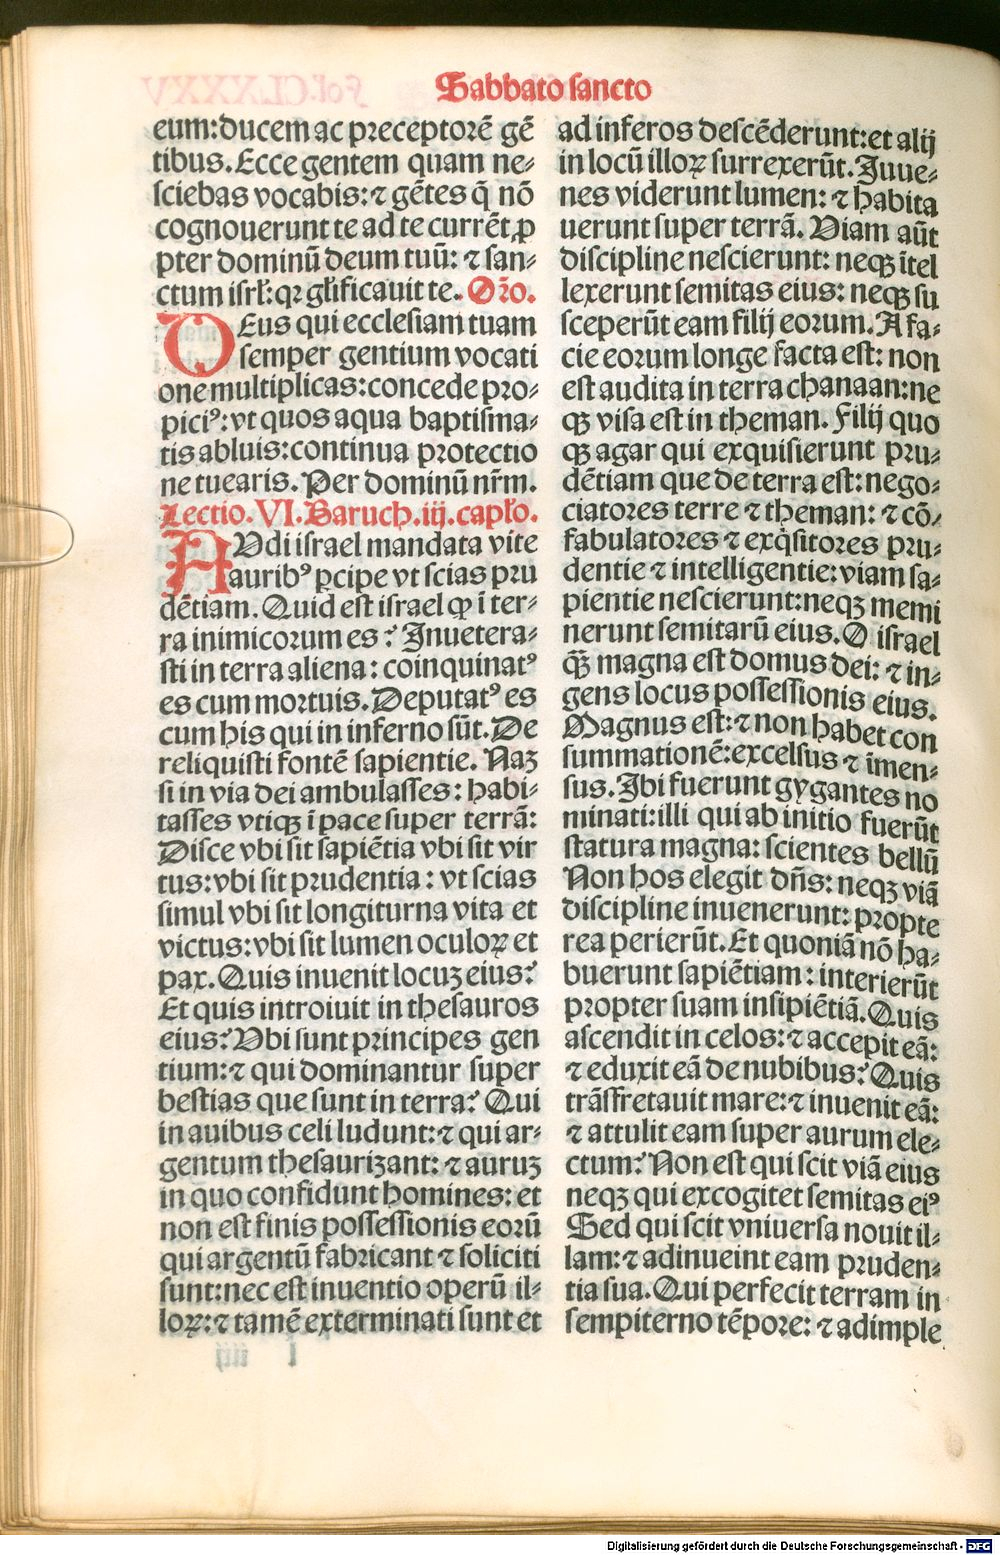 Sabbato sancto
eum:ducem ac preceptorē gē
tibus.Ecce gentem quam ne⸗
sciebas vocabis:⁊ gētes q̄ nō
cognouerunt te ad te currēt ꝓ
pter dominū deum tuū: ⁊ san⸗
ctum isrl̓:qꝛ gl̓ificauit te. Oꝛ̄o.
DEus qui ecclesiam tuam
semper gentium vocati
one multiplicas:concede pro⸗
piciꝰ:vt quos aqua baptisma⸗
tis abluis:continua protectio
ne tuearis. Per dominū nr̄m.
Lectio.VI.Baruch.iij.capl̓o.
AVdi israel mandata vite
auribꝰ ꝑcipe vt scias pru
dētiam.Quid est israel ꝙ ī ter⸗
ra inimicorum es? Inuetera⸗
sti in terra aliena: coinquinatꝰ
es cum mortuis.Deputatꝰ es
cum his qui in inferno sūt.De
reliquisti fontē sapientie. Naꝫ
si in via dei ambulasses: habi⸗
tasses vtiqꝫ ī pace super terrā:
Disce vbi sit sapiētia vbi sit vir
tus:vbi sit prudentia: vt scias
simul vbi sit longiturna vita et
victus:vbi sit lumen oculoꝝ et
pax.Quis inuenit locuꝫ eius?
Et quis introiuit in thesauros
eius?Vbi sunt principes gen
tium:⁊ qui dominantur super
bestias que sunt in terra? Qui
in auibus celi ludunt:⁊ qui ar⸗
gentum thesaurizant: ⁊ auruꝫ
in quo confidunt homines: et
non est finis possessionis eorū
qui argentū fabricant ⁊ soliciti
sunt:nec est inuentio operū il⸗
loꝝ:⁊ tamē exterminati sunt et
ad inferos descēderunt:et alij
in locū illoꝝ surrexerūt.Iuue⸗
nes viderunt lumen: ⁊ habita
uerunt super terrā. Viam aūt
discipline nescierunt: neqꝫ ītel
lexerunt semitas eius: neqꝫ su
sceperūt eam filij eorum.A fa⸗
cie eorum longe facta est: non
est audita in terra chanaan:ne
qꝫ visa est in theman. Filij quo
qꝫ agar qui exquisierunt pru⸗
dētiam que de terra est:nego⸗
ciatores terre ⁊ theman: ⁊ cō⸗
fabulatores ⁊ exq̇sitores pru⸗
dentie ⁊ intelligentie:viam sa⸗
pientie nescierunt:neqꝫ memi
nerunt semitarū eius.O israel
qꝫ̄ magna est domus dei: ⁊ in⸗
gens locus possessionis eius.
Magnus est:⁊ non habet con
summationē:excelsus ⁊ īmen⸗
sus.Ibi fuerunt gygantes no
minati:illi qui ab initio fuerūt
statura magna: scientes bellū
Non hos elegit dn̄s: neqꝫ viā
discipline inuenerunt: propte
rea perierūt.Et quoniā nō ha⸗
buerunt sapiētiam: interierūt
propter suam insipiētiā.Quis
ascendit in celos:⁊ accepit eā:
⁊ eduxit eā de nubibus?Quis
trāsfretauit mare:⁊ inuenit eā:
⁊ attulit eam super aurum ele⸗
ctum?Non est qui scit viā eius
neqꝫ qui excogitet semitas eiꝰ
Sed qui scit vniuersa nouit il⸗
lam:⁊ adinueint eam pruden⸗
tia sua.Qui perfecit terram in
sempiterno tēpore: ⁊ adimple
Digitalisierung gefördert durch die Deutsche Forschungsgemeinschaft - DFG